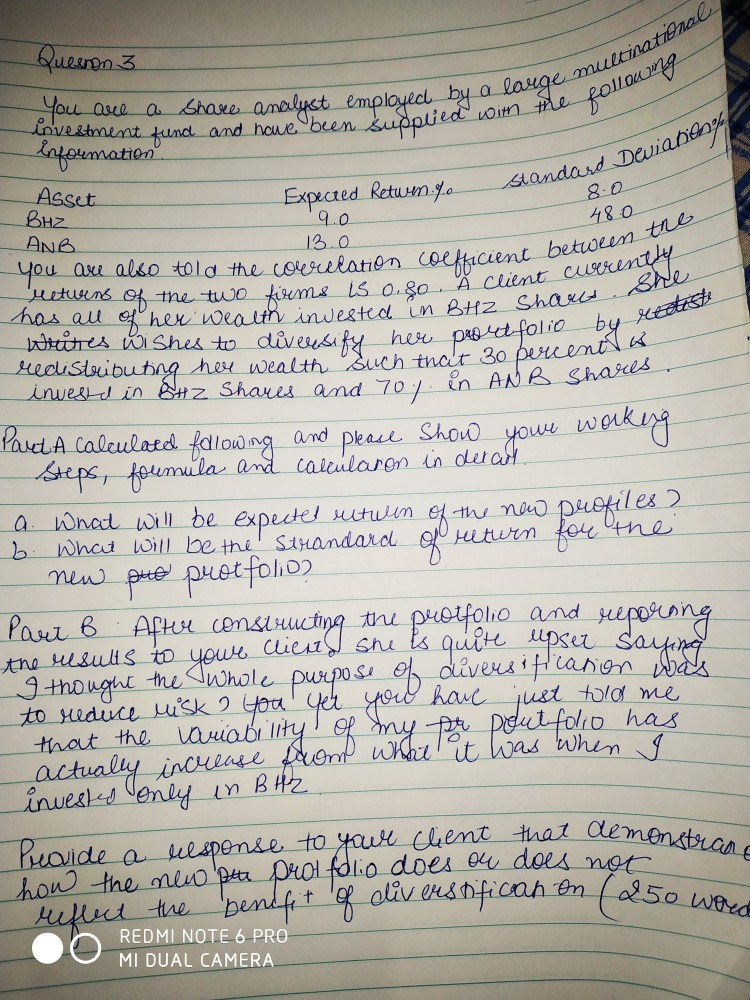 Queston 3
You are a share analyst employed by a large multinational
investment fund and have been supplied with the following
information.
Asset Expected Return % Standard Deviation %
BHZ 9.0 8.0
ANB 13.0 48.0
You are also told the correlation coefficient between the
returns of the two firms is 0.80. A client currently
has all of her wealth invested in BHZ Shares. She
wishes to diversify her portfolio by
redistributing her wealth such that 30 percent is
invested in BHZ Shares and 70% in ANB Shares.
Part A Calculated following and please show your working
steps, formula and calculation in detail.
a. What will be expected return of the new profiles?
b. What will be the strandard of return for the
new protfolio?
Part B. After constructing the protfolio and reporning
the results to your client, she is quite upset saying
I thought the whole purpose of diversification was
to reduce risk? Yet you have just told me
that the variability of my portfolio has
actually increase from what it was when I
invested only in BHZ.
Provide a response to your client that demonstrate
how the new protfolio does or does not
reflect the benefit of diverstification (250 word
REDMI NOTE 6 PRO
MI DUAL CAMERA